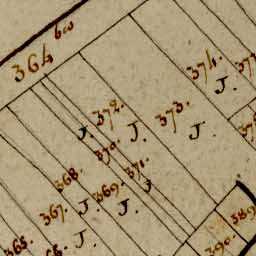 364 bis
374.
J.
37
372.
373.
J.
J.
J.
370.
371.
J.
368.
369.
J.
367.
J.
J.
365.
66.
389
390.